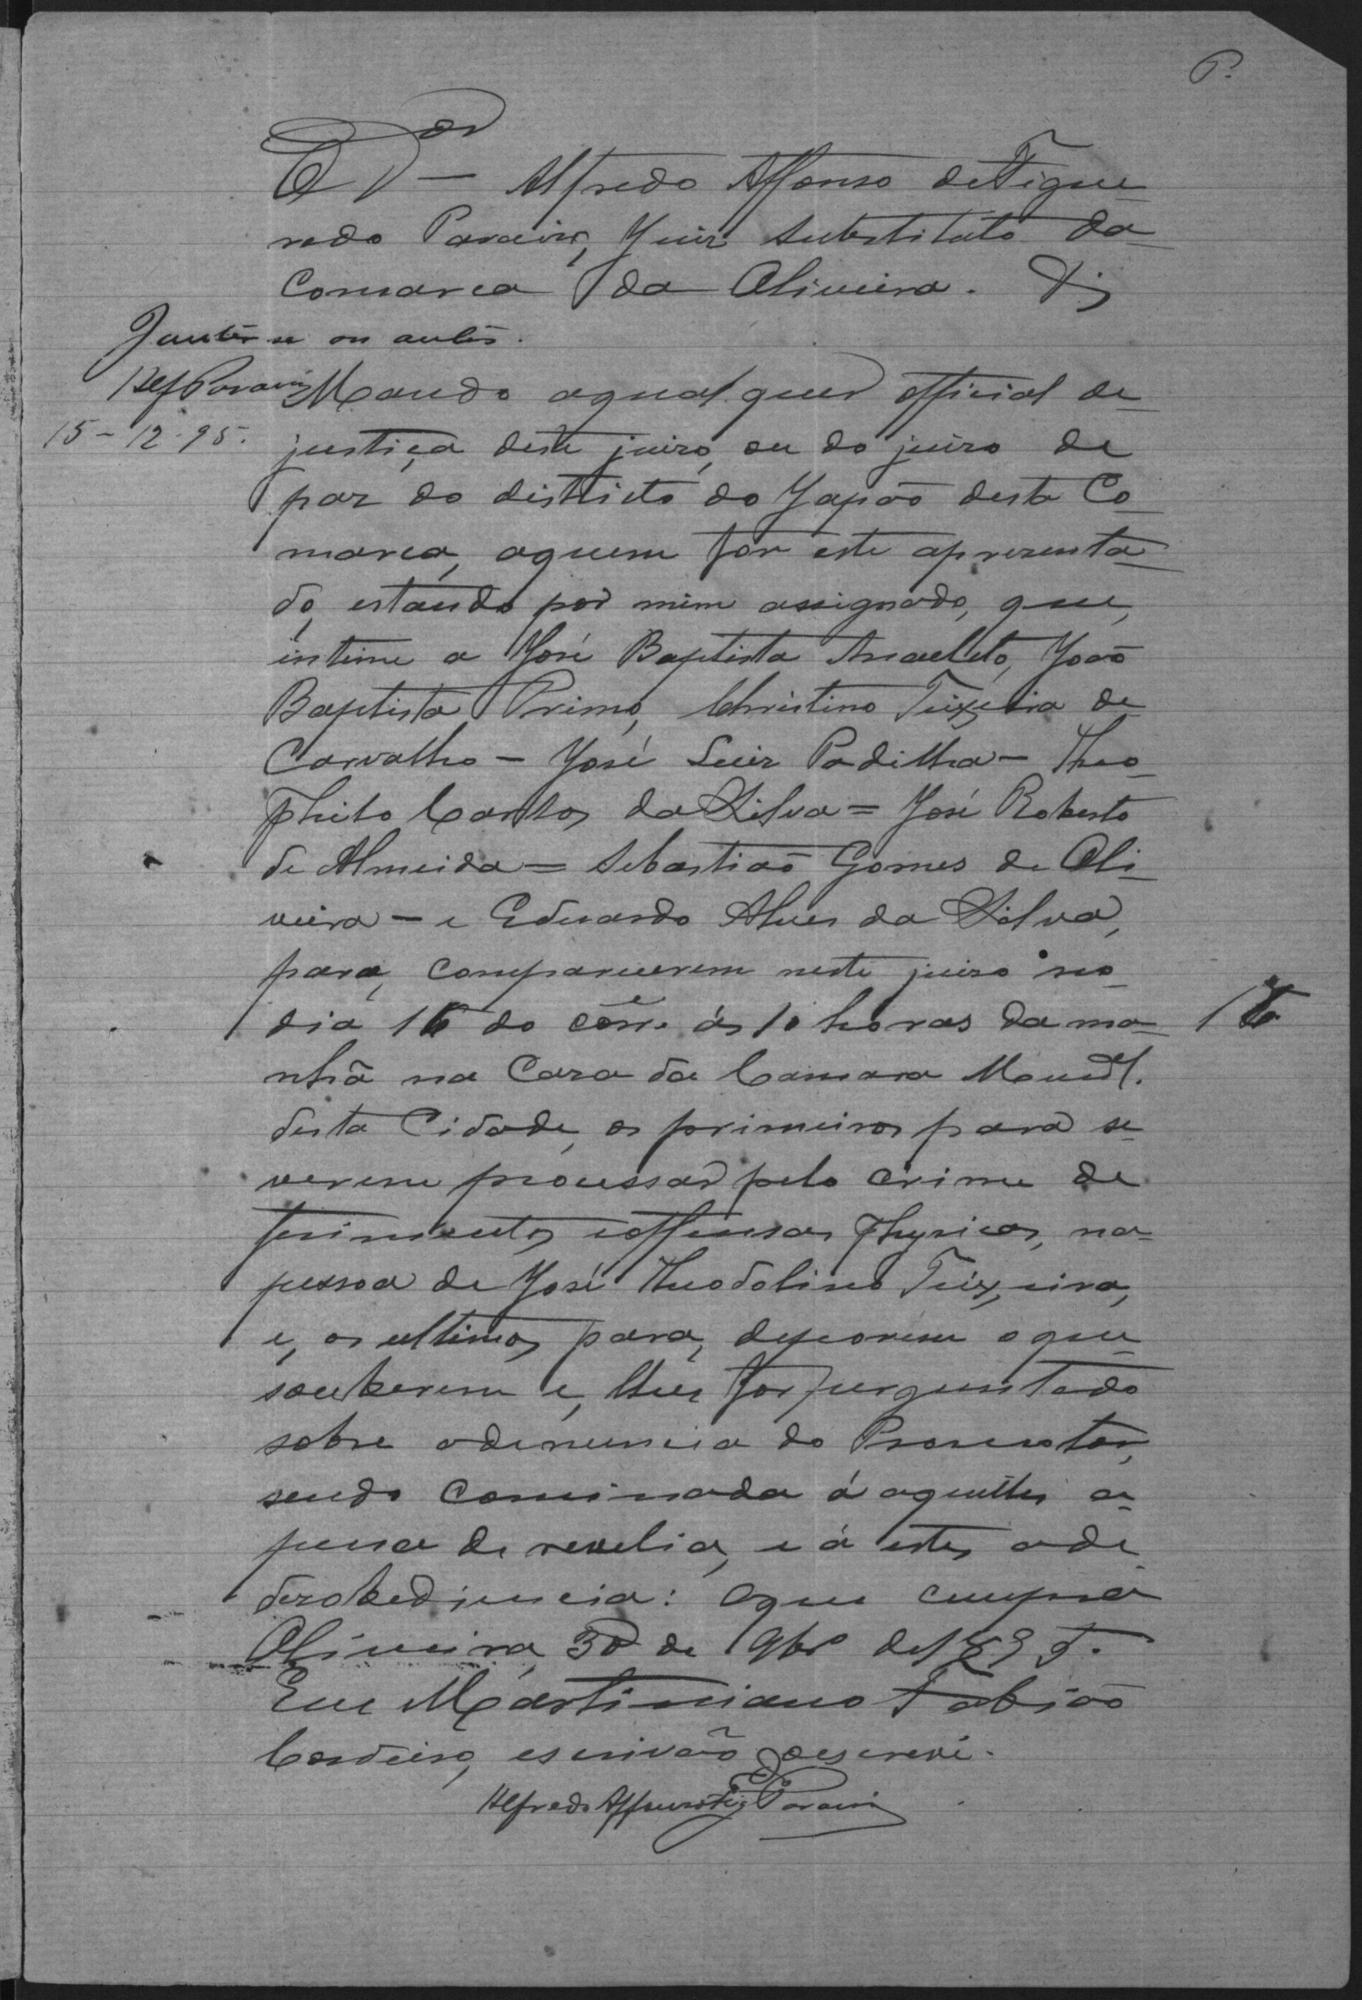 P.
O Dor Alfredo Affonso de Figue
redo Paraiso, Juiz substituto da
Comarca da Oliveira.
Junte-se os autos.
15-12-95.
Mando aqualquer official de
justiça deste juizo, ou do juizo de
paz do districto do Japão desta Co
marca, aquem for este apresenta
do, estando por mim assignado, que,
intime a José Baptista Anacleto, João
Baptista Primo, Christino Teixeira de
Carvalho - José Luiz Padilha - Theo
philo Carlos da Silva = José Roberto
de Almeida = Sebastião Gomes de Oli
veira - e Eduardo Alves da Silva,
para, comparecerem neste juizo no
dia 16 do corre. ás 10 horas da ma
nhã na Caza da Camara Municl.
desta Cidade, os primeiros para se
verem processar pelo crime de
ferimentos e offensas physicas, na
pessoa de José Theodolino Teixeira,
e, os ultimos para, deporem o que
souberem e, lhes for perguntado
sobre a denuncia do Promotor,
sendo cominada á aquelles a
pena de revelia, e á estes a de
dezobediencia: O que cumpra
Oliveira 30 de 9bro de 1895.
Eu Martiniano Fabião
Cordeiro, escrivão o escrevi.
Alfredo Affonso Fig Paraiso
16